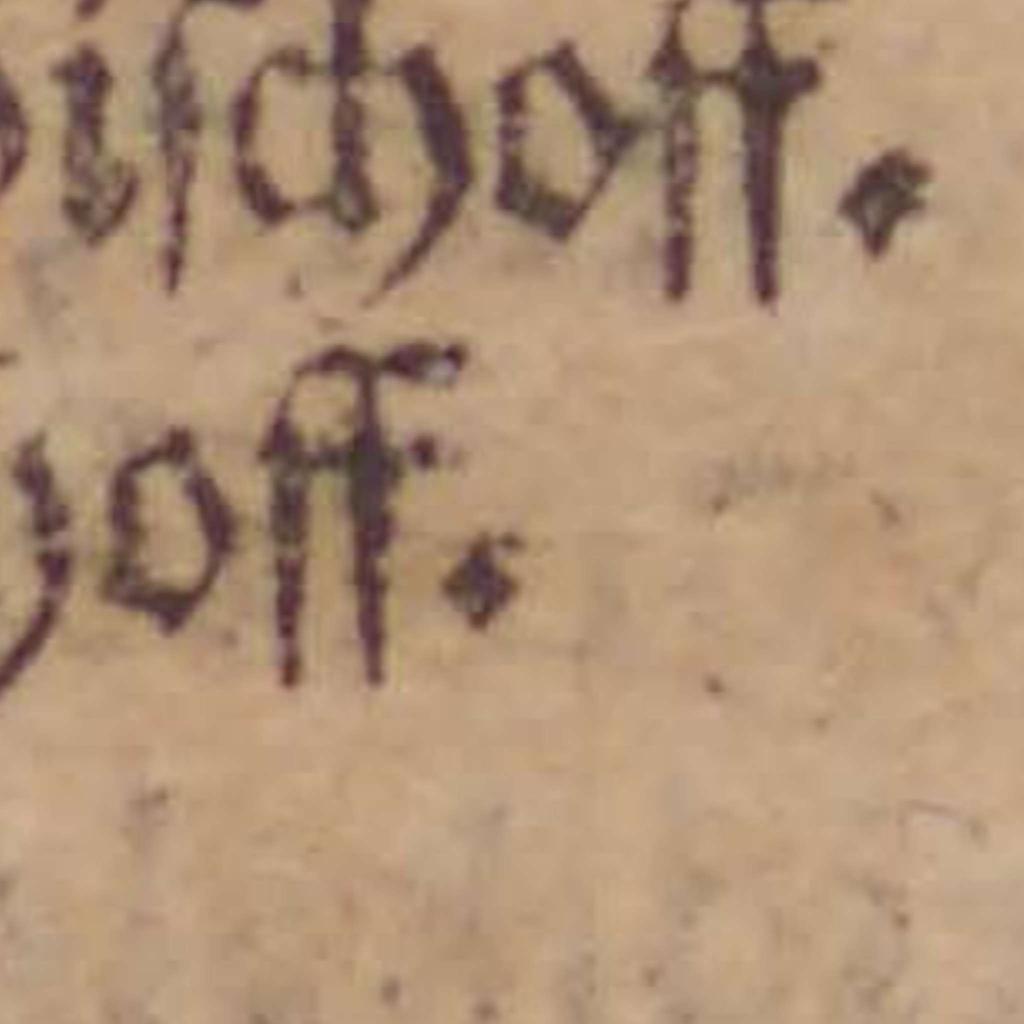 bischoff.
hoff.